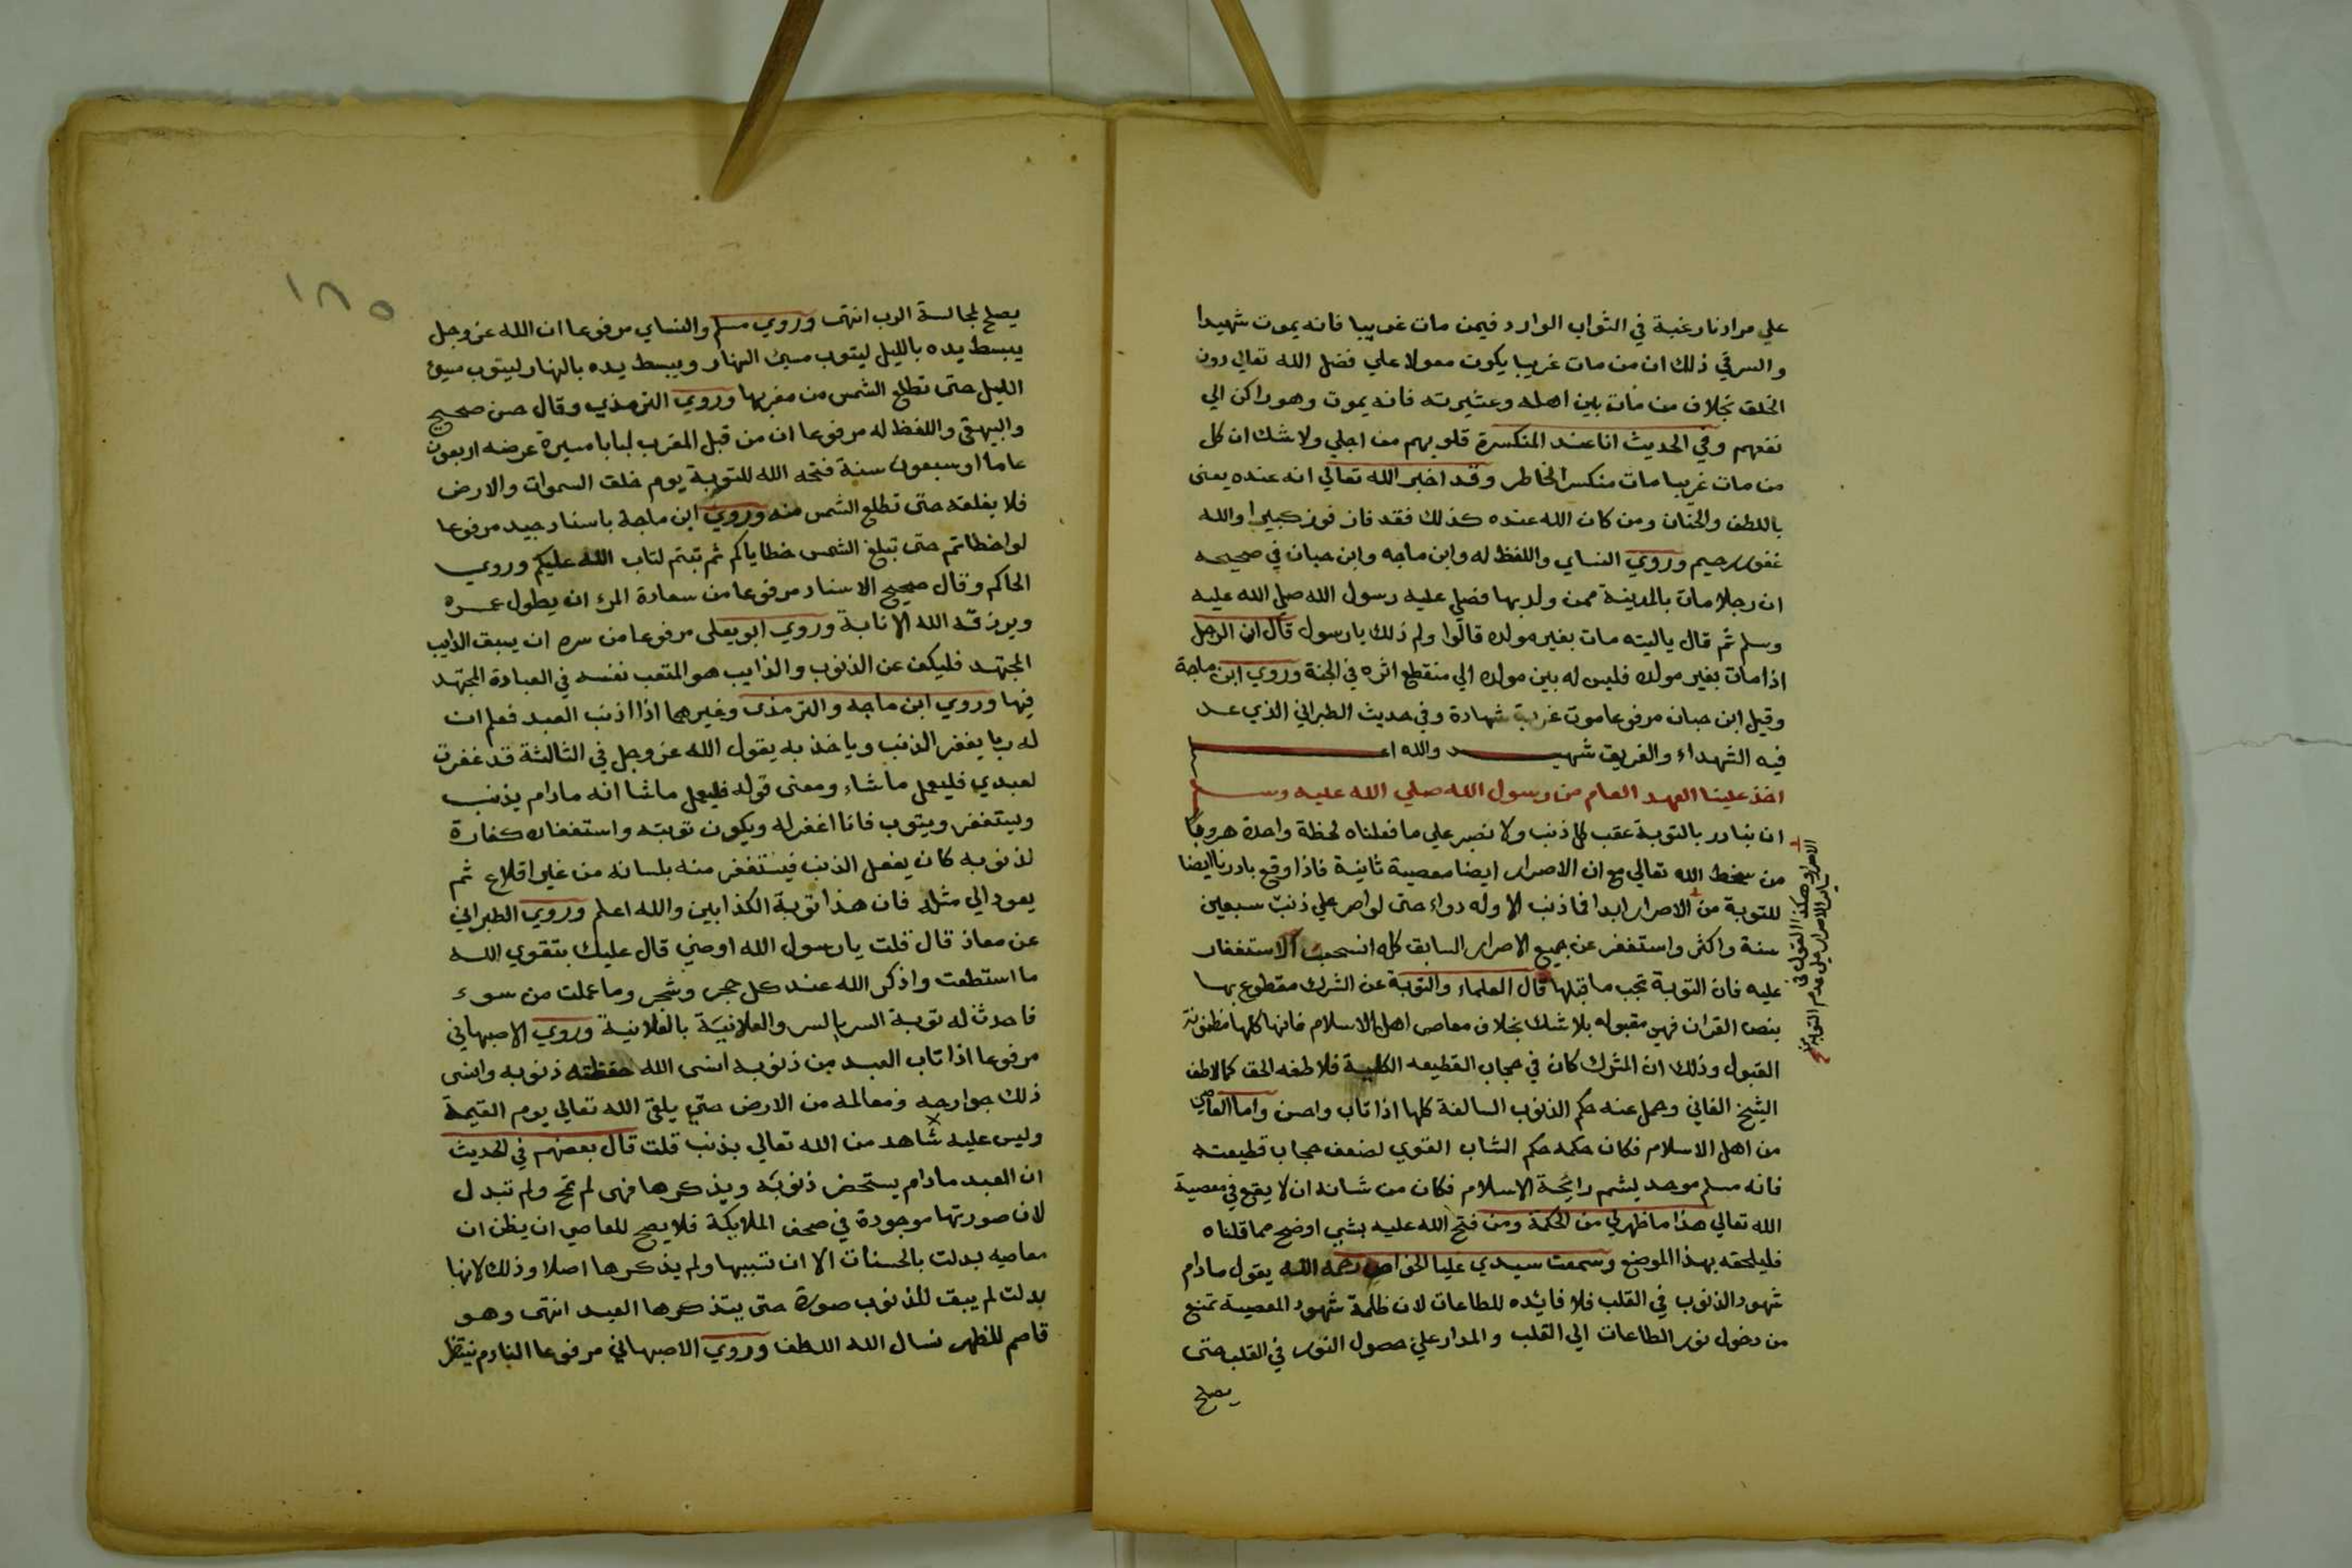 علي مرادنا رغبة في الثواب الوارد فيمن مات غريبا فانه يموت شهيدا
والسر في ذلك ان من مات غريبا يكون معولا علي فضل الله تعالي دون
الخلق بخلاف من مات بين اهله وعشيرته فانه يموت وهو راكن الي
نفعهم وفي الحديث انا عند المنكسرة قلوبهم من اجلي ولا شك ان كل
من مات غريبا مات منكسر الخاطر وقد اخبر الله تعالي انه عنده يعنى
باللطف والحنان ومن كان الله عنده كذلك فقد فاز فوز كبيرا والله
غفور رحيم وروي النساي واللفظ له وابن ماجه وابن حبان في صحيحه
ان رجلا مات بالمدينة ممن ولد بها فصلي عليه رسول الله صلي الله عليه
وسلم ثم قال ياليته مات بغير مولده قالوا ولم ذلك يا رسول قال ان الرجل
اذا مات بغير مولده فليس له بين مولده الي منقطع اثره في الجنة وروي ابن ماجة
وقيل ابن حبان مرفوعا موت غربة شهادة وفي حديث الطبراني الذي عد
فيه الشهداء والغريق شهيد والله اعلم
اخذ علينا العهد العام من رسول الله صلي الله عليه وسلم
ان نبادر بالتوبة عقب كل ذنب ولا نصبر علي ما فعلناه لحظة واحدة هروبا
من سخط الله تعالي مع ان الاصرار ايضا معصية ثانية فاذا وقع بادرنا ايضا
للتوبة من الاصرار ابدا فما ذنب الا وله دواء حتى لو اصر علي ذنب سبعين
سنة واكثر واستغفر عن جميع الاصرار السابق كله انسحب الاستغفار
عليه فان التوبة تجب ما قبلها قال العلماء والتوبة عن الشرك مقطوع بها
بنص القران فهي مقبوله بلا شك بخلاف معاصي اهل الاسلام فانها كلها مظنونة
القبول وذلك ان المشرك كان في حجاب القطيعه الكلية فلاطفه الحق كما لاطف
الشيخ الفاني وحمل عنه حكم الذنوب السالفة كلها اذا تاب واحسن واما العاصي
من اهل الاسلام فكان حكمه حكم الشاب القوي لضعف حجاب قطيعته
فانه مسلم موحد يشم رائحة الاسلام فكان من شانه ان لا يقع في معصية
الله تعالي هذا ما ظهر لي من الحكمة ومن فتح الله عليه بشي اوضح مما قلناه
فليلحقه بهذا الموضع وسمعت سيدي عليا الخواص رحمه الله يقول مادام
شهود الذنوب في القلب فلا فائده للطاعات لان ظلمة شهود المعصية تمنع
من دخول نور الطاعات الي القلب والمدار علي حصول النور في القلب حتى
يصلح
الاصرار وهكذا القول في
ساير الاصرار علي عدم التوبة من
١٨٥
يصلح لمجالسة الرب انتهى وروي مسلم والنساي مرفوعا ان الله عز وجل
يبسط يده بالليل ليتوب مسئ النهار ويبسط يده بالنهار ليتوب مسيئ
الليل حتى تطلع الشمس من مغربها وروي الترمذي وقال حسن صحيح
والبيهقي واللفظ له مرفوعا ان من قبل المغرب لبابا مسيرة عرضه اربعون
عاما او سبعون سنة فتحه الله للتوبة يوم خلق السموات والارض
فلا يغلقه حتى تطلع الشمس منه وروي ابن ماجة باسناد جيد مرفوعا
لو اخطاتم حتى تبلغ الشمس خطاياكم ثم تبتم لتاب الله عليكم وروي
الحاكم وقال صحيح الاسناد مرفوعا من سعادة المرء ان يطول عمره
ويرزقه الله الانابة وروي ابو يعلى مرفوعا من سره ان يسبق الدايب
المجتهد فليكف عن الذنوب والدايب هو المتعب نفسه في العبادة المجتهد
فيها وروي ابن ماجه والترمذي وغيرهما اذا اذنب العبد فعلم ان
له ربا يغفر الذنب وياخذ به يقول الله عز وجل في الثالثة قد غفرت
لعبدي فليعمل ما شاء ومعنى قوله فليعمل ما شا انه مادام يذنب
ويستغفر ويتوب فانا اغفر له ويكون توبته واستغفاره كفارة
لذنوبه كان يفعل الذنب فيستغفر منه بلسانه من غير اقلاع ثم
يعود الي مثله فان هذا توبة الكذابين والله اعلم وروي الطبراني
عن معاذ قال قلت يا رسول الله اوصني قال عليك بتقوي الله
ما استطعت واذكر الله عند كل حجر وشجر وما عملت من سوء
فاحدث له توبة السر بالسر والعلانية بالعلانية وروي الاصبهاني
مرفوعا اذا تاب العبد من ذنوبه انسى الله حفظته ذنوبه وانسى
ذلك جوارحه ومعالمه من الارض حتى يلقى الله تعالي يوم القيمة
وليس عليه شاهد من الله تعالي بذنب قلت قال بعضهم في الحديث
ان العبد مادام يستحضر ذنوبه ويذكرها فهي لم تمح ولم تبدل
لان صورتها موجودة في صحف الملايكة فلا يصح للعاصي ان يظن ان
معاصيه بدلت بالحسنات الا ان نسيها ولم يذكرها اصلا وذلك لانها
بدلت لم يبق للذنوب صورة حتى يتذكرها العبد انتهى وهو
قاصم للظهر نسال الله اللطف وروي الاصبهاني مرفوعا النادم ينتظر